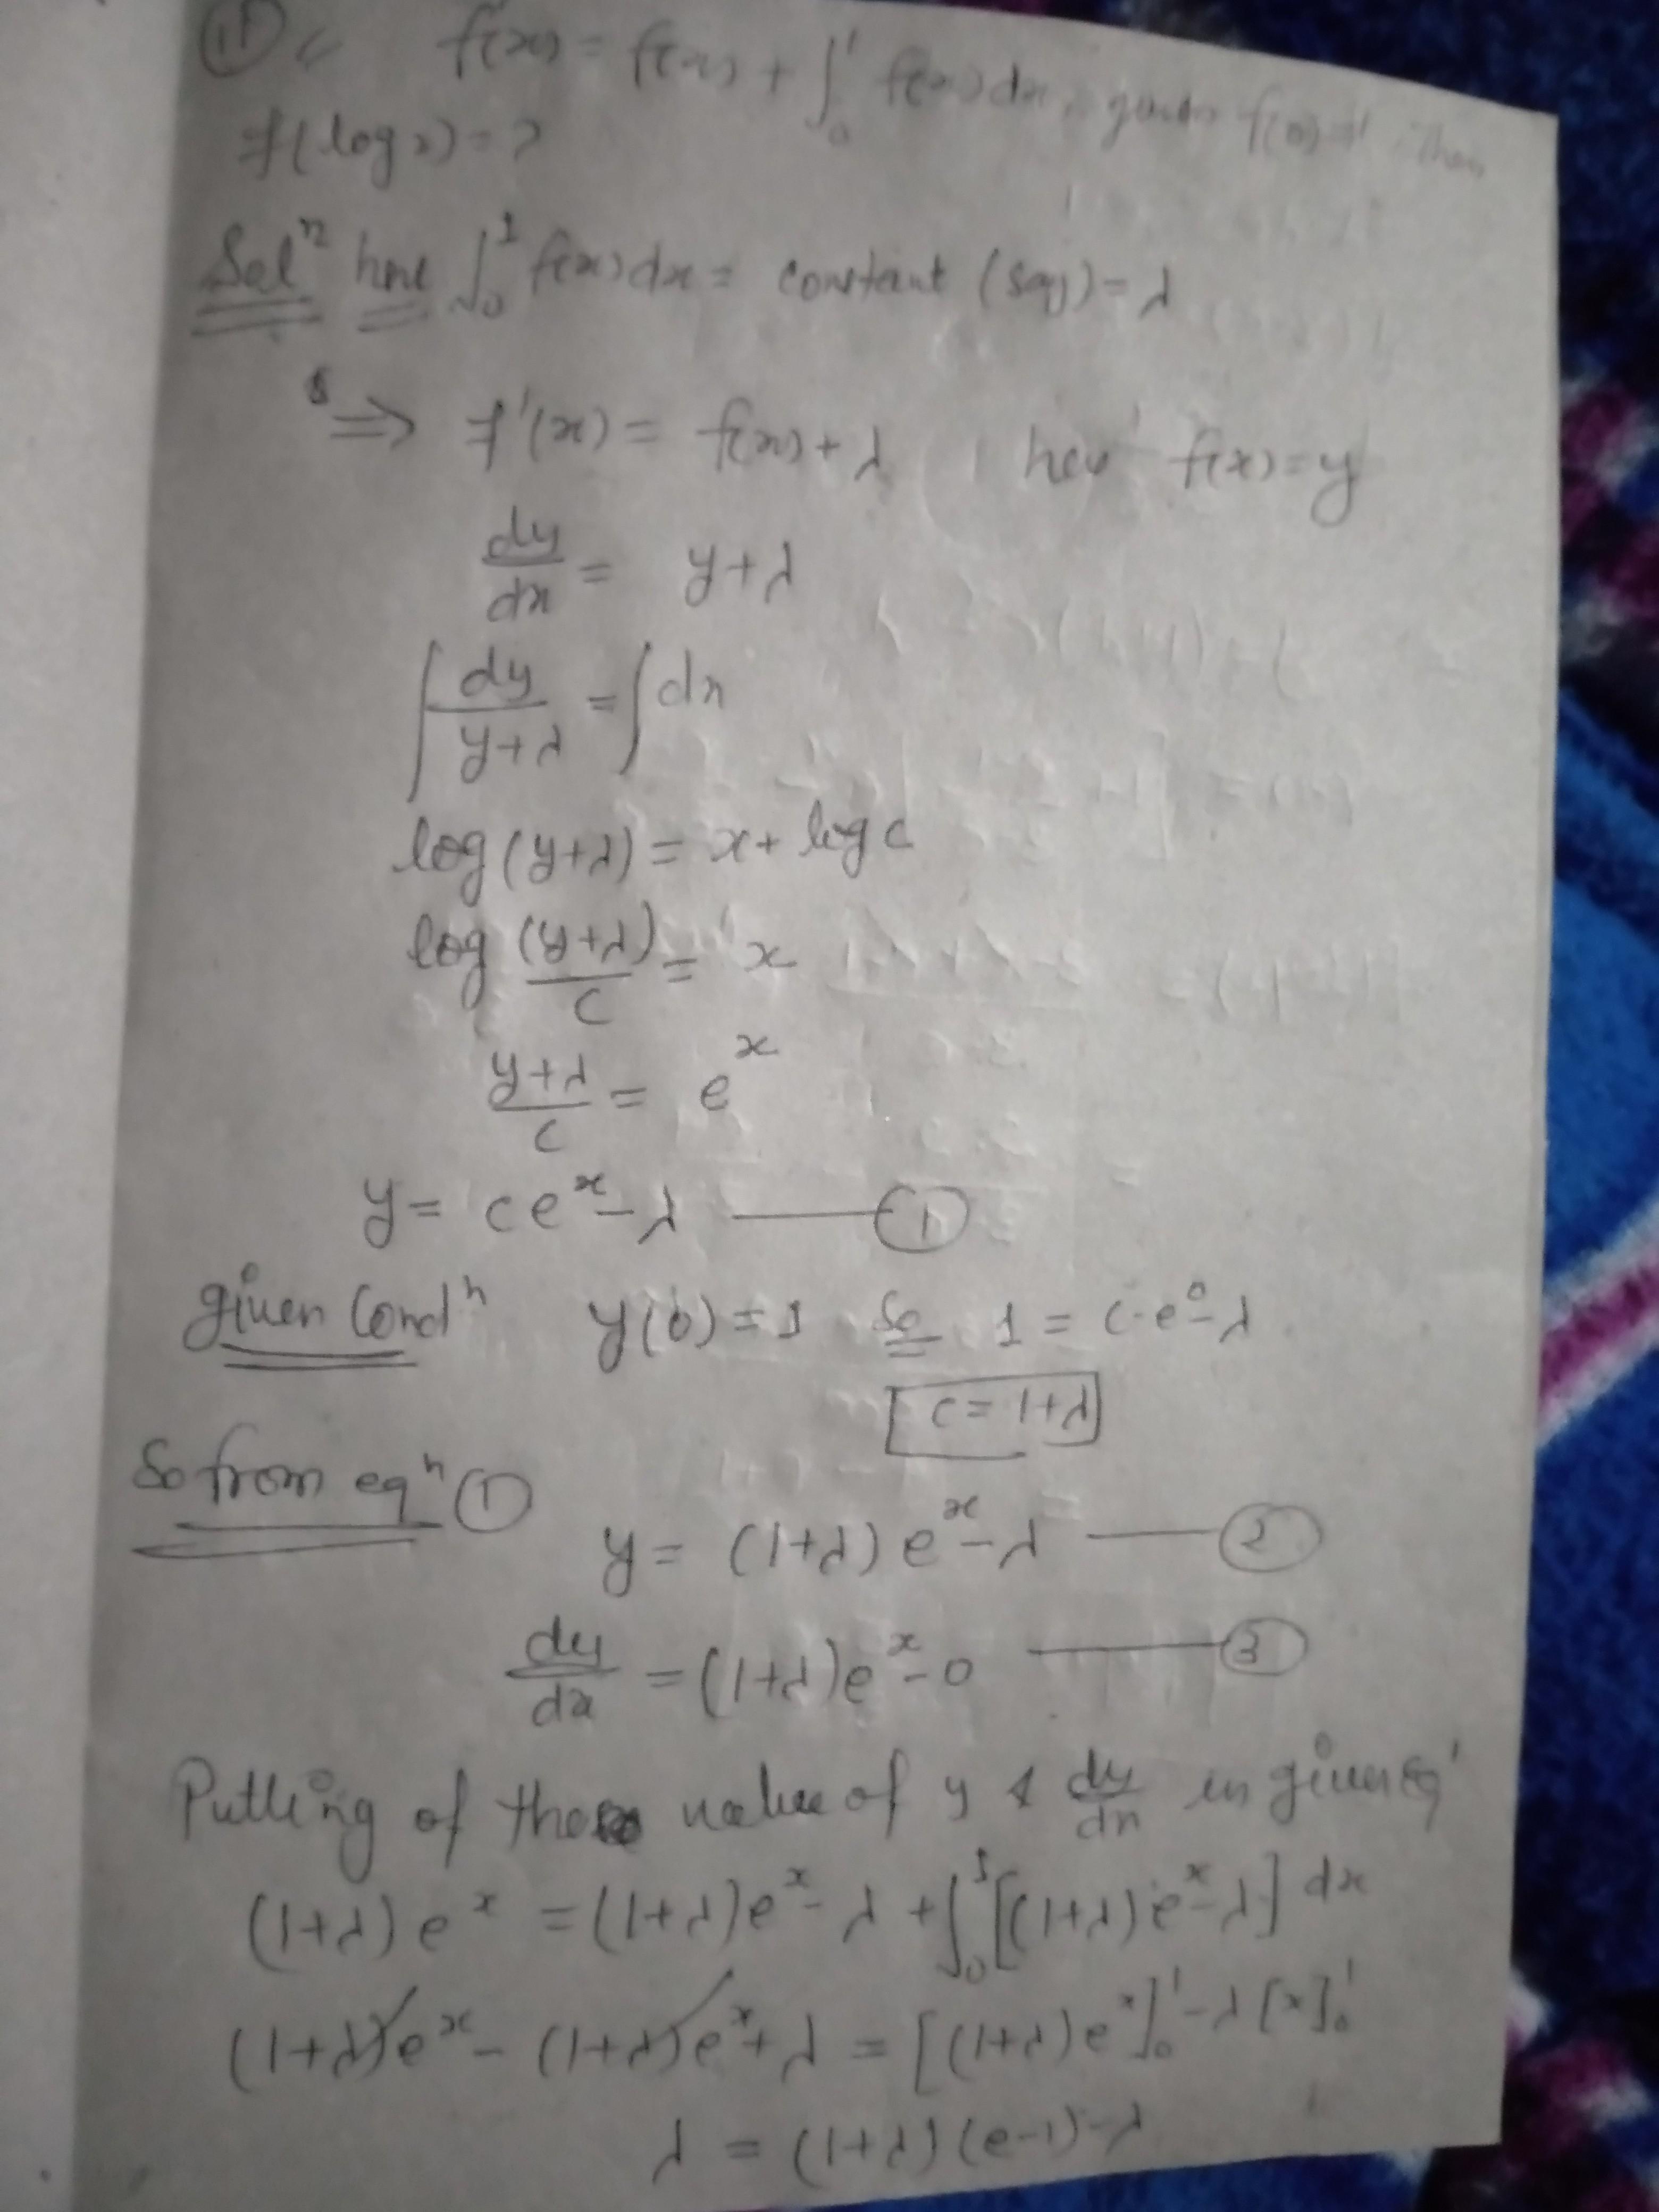 (11) f(x) = f(x) + ∫₀¹ f(x) dx, given f(0)=1 Then
f(log 2) = ?
Solⁿ here ∫₀¹ f(x) dx = constant (say) = λ
⇒ f'(x) = f(x) + λ | here f(x) = y
dy/dx = y+λ
∫ dy/(y+λ) = ∫ dx
log (y+λ) = x + log c
log (y+λ)/c = x
(y+λ)/c = eˣ
y = ceˣ - λ —— (1)
given Condⁿ y(0) = 1 So 1 = c·e⁰ - λ
c = 1+λ
So from eqⁿ (1)
y = (1+λ) eˣ - λ —— (2)
dy/dx = (1+λ)eˣ - 0 —— (3)
Putting of these value of y & dy/dx in given Eqⁿ
(1+λ) eˣ = (1+λ)eˣ - λ + ∫₀¹ [(1+λ) eˣ - λ] dx
(1+λ)eˣ - (1+λ)eˣ + λ = [(1+λ)eˣ]₀¹ - λ [x]₀¹
λ = (1+λ) (e-1) - λ